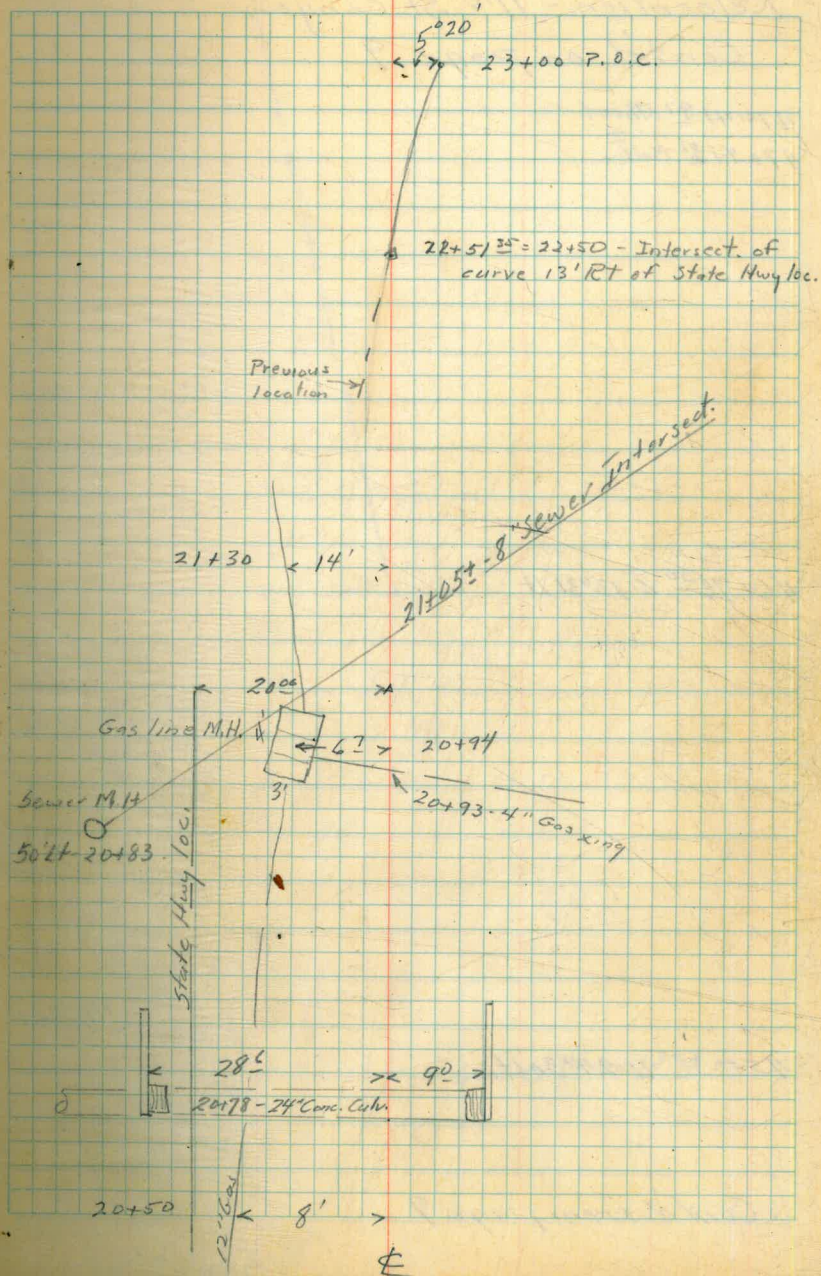 5°20'
23+00 P.O.C.
22+51 35 = 22+50 - Intersect. of
curve 13' Rt of State Hwy loc.
Previous
location
21+05± - 8" Sewer Intersect.
21+30 14'
20 06
Gas line M.H. 4'
6 7 20+94
3'
20+93 - 4" Gas xing
Sewer M.H
50' Lt - 20+83
State Hwy loc.
28 6 9 0
20+78 - 24" Conc. Culv.
20+50 12" Gas 8'
℄